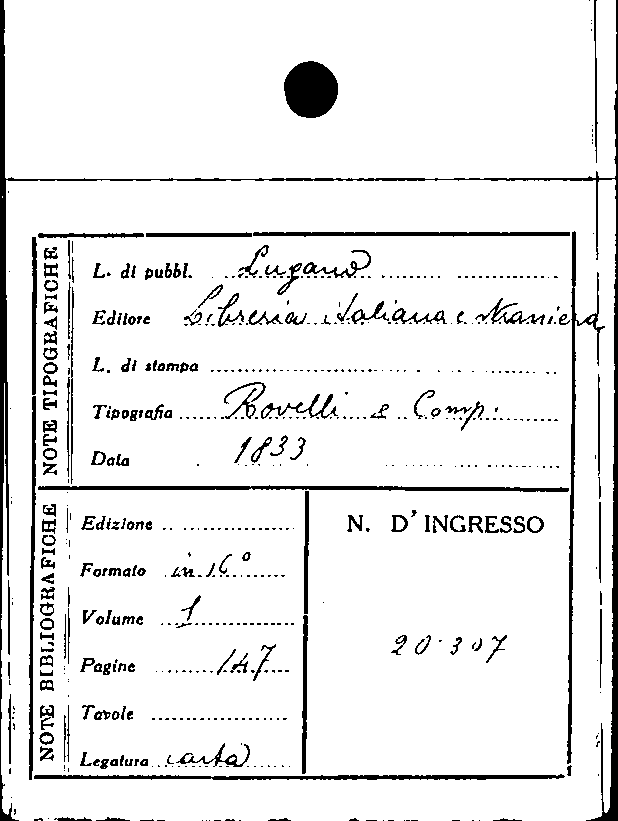 NOTE TIPOGRAFICHE
L. di pubbl. Lugano
Editore Libreria italiana e straniera
L. di stampa
Tipografia Rovelli e Comp.
Data 1833
NOTE BIBLIOGRAFICHE
Edizione
Formato in 16°
Volume 1
Pagine 147
Tavole
Legatura carta
N. D'INGRESSO
20.307